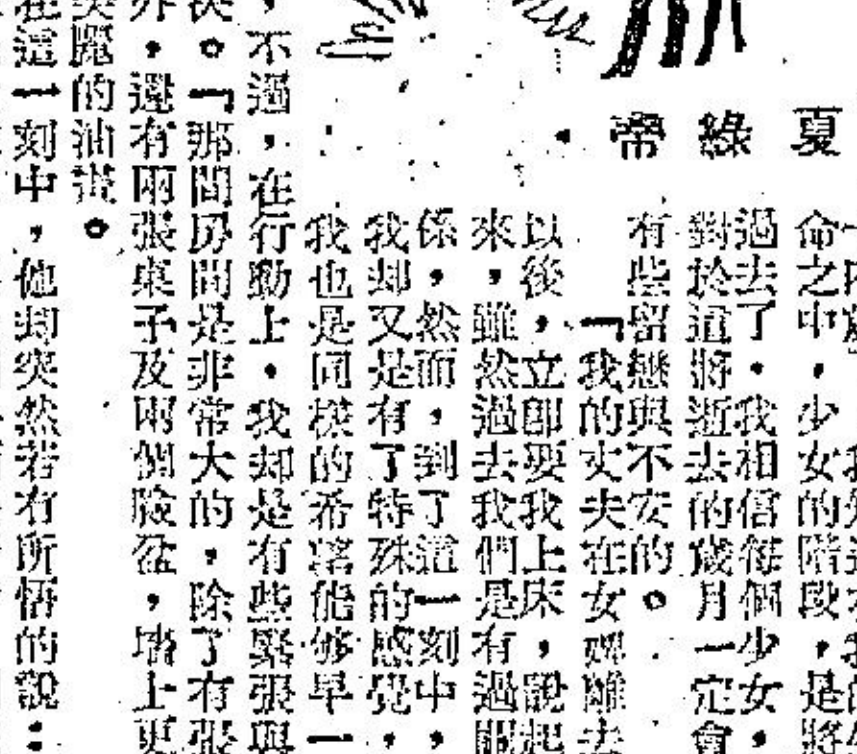 夏綠帝
命之中，少女的階段，是將
過去了．我相信每個少女，
對於這將逝去的歲月一定會
有些留戀與不安的。
「我的丈夫在女離去
以後，立卽要我上床，說起
來，雖然過去我們是有過關
係，然而，到了這一刻中，
我却又是有了特殊的感覺，
我也是同樣的希望能够早一
，不過，在行動上，我却是有些緊張與
。「那間房間是非常大的，除了有張
，還有兩張桌子及兩個臉盆，墻上更
美麗的油畫。
在這一刻中，他却突然若有所悟的說：